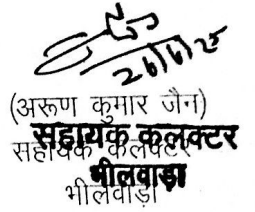 26/6/25
(अरुण कुमार जैन)
सहायक कलक्टर
सहायक कलक्टर
भीलवाड़ा
भीलवाड़ा